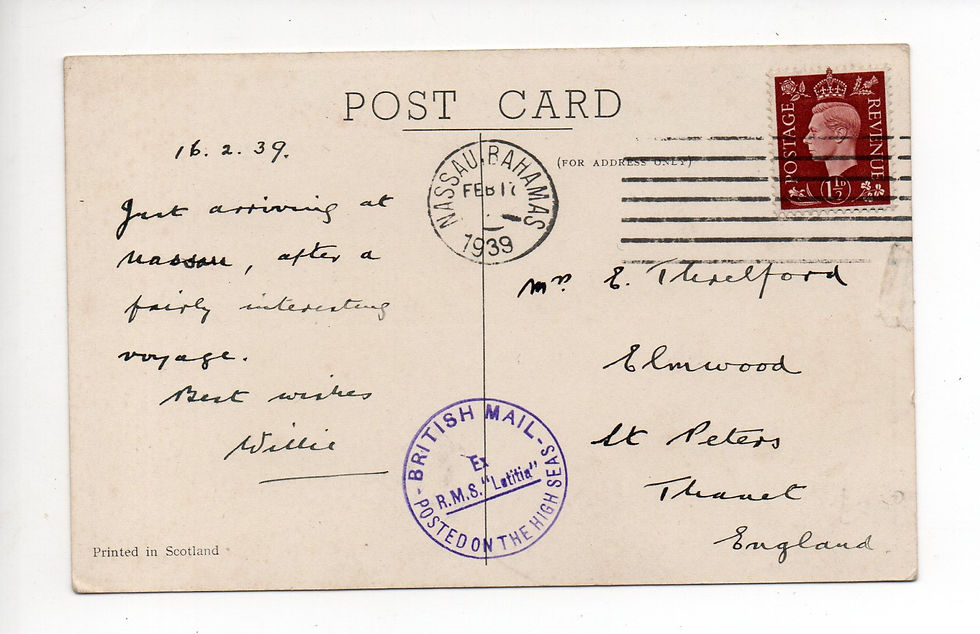 POST CARD
16. 2. 39.
Just arriving at
Nassau, after a
fairly interesting
voyage.
Best wishes
Willie
Printed in Scotland
NASSAU, BAHAMAS
FEB 17
1939
(FOR ADDRESS ONLY)
POSTAGE
REVENUE
1½D
Mrs. E. Threlford
Elmwood
St Peters
Thanet
England.
- BRITISH MAIL -
Ex
R.M.S. "Letitia"
POSTED ON THE HIGH SEAS